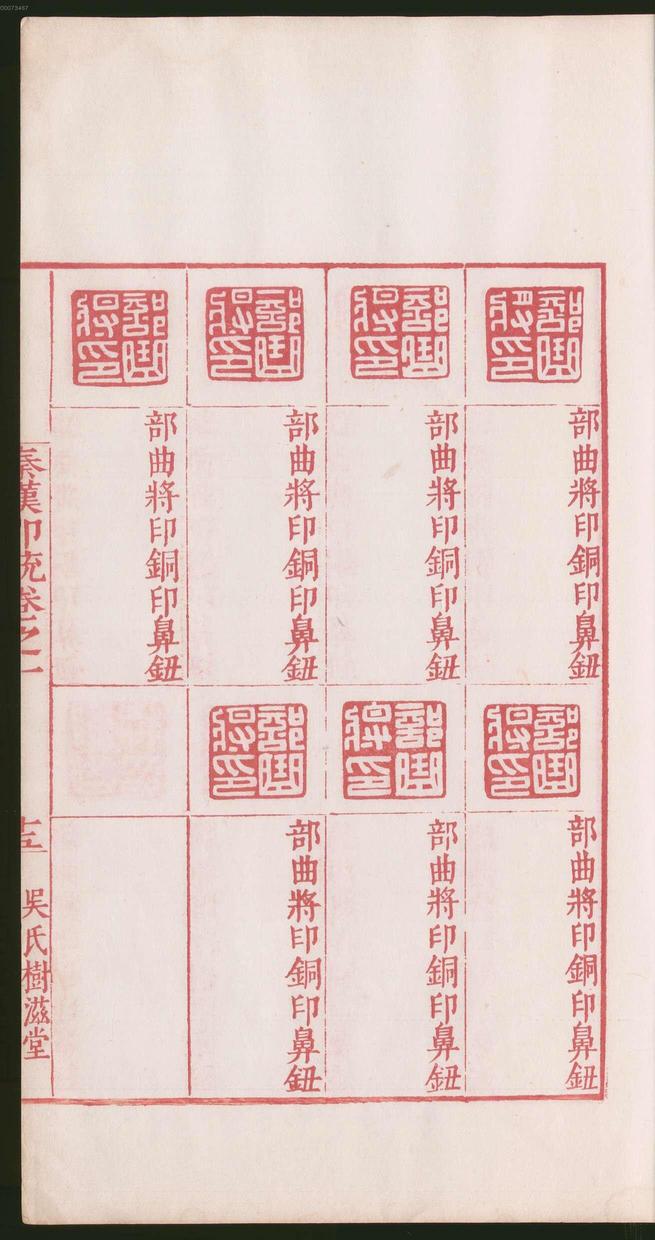 00073467
部曲將印
部曲將印銅印鼻鈕
部曲將印
部曲將印銅印鼻鈕
部曲將印
部曲將印銅印鼻鈕
部曲將印
部曲將印銅印鼻鈕
部曲將印
部曲將印銅印鼻鈕
部曲將印
部曲將印銅印鼻鈕
部曲將印
部曲將印銅印鼻鈕
秦漢印統卷之一
十五
吳氏樹滋堂